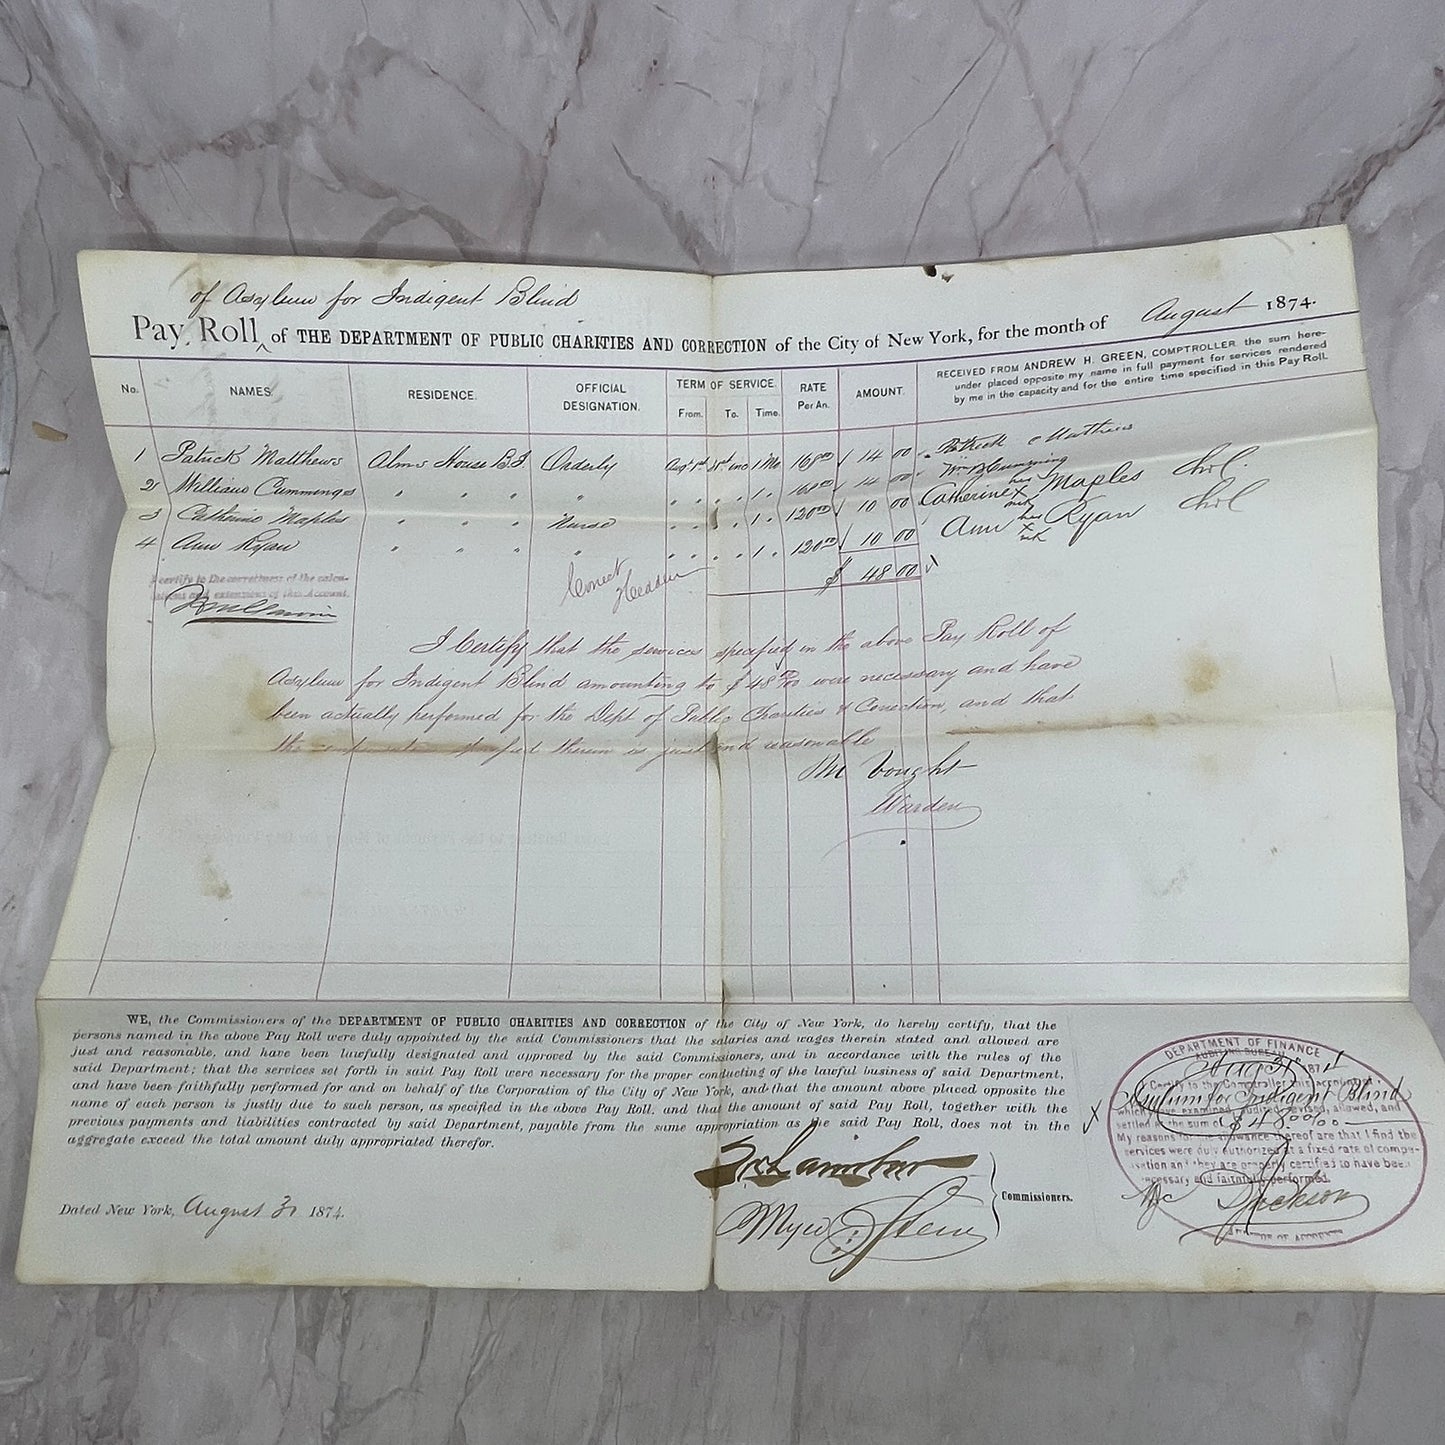 of Asylum for Indigent Blind
Pay Roll ^ of THE DEPARTMENT OF PUBLIC CHARITIES AND CORRECTION of the City of New York, for the month of August 1874.
No. NAMES. RESIDENCE. OFFICIAL DESIGNATION. TERM OF SERVICE. From. To. Time. RATE Per An. AMOUNT.
RECEIVED FROM ANDREW H. GREEN, COMPTROLLER the sum here-
under placed opposite my name in full payment for services rendered
by me in the capacity and for the entire time specified in this Pay Roll.
1 Patrick Matthews Alms House B.I. Orderly Augt 1st 31st inc 1 Mo 168.00 14 00 Patrick Matthews
2 William Cummings " " " " " " " 1 " 168.00 14 00 Wm Cumming
3 Catherine Maples " " " Nurse " " " 1 " 120.00 10 00 Catherine her x mk Maples
4 Ann Ryan " " " " " " " 1 " 120.00 10 00 Ann her x mk Ryan
$ 48 00
I certify to the correctness of the calcu-
lations and extensions of this Account.
Correct
I Certify that the services specified in the above Pay Roll of
Asylum for Indigent Blind amounting to $48 00/100 were necessary and have
been actually performed for the Dept of Public Charities & Correction, and that
the compensation specified therein is just and reasonable
M Vought
Warden
WE, the Commissioners of the DEPARTMENT OF PUBLIC CHARITIES AND CORRECTION of the City of New York, do hereby certify, that the
persons named in the above Pay Roll were duly appointed by the said Commissioners that the salaries and wages therein stated and allowed are
just and reasonable, and have been lawfully designated and approved by the said Commissioners, and in accordance with the rules of the
said Department; that the services set forth in said Pay Roll were necessary for the proper conducting of the lawful business of said Department,
and have been faithfully performed for and on behalf of the Corporation of the City of New York, and that the amount above placed opposite the
name of each person is justly due to such person, as specified in the above Pay Roll. and that the amount of said Pay Roll, together with the
previous payments and liabilities contracted by said Department, payable from the same appropriation as the said Pay Roll, does not in the
aggregate exceed the total amount duly appropriated therefor.
Myer Stern
Commissioners.
Dated New York, August 31 1874.
DEPARTMENT OF FINANCE
AUDITING BUREAU
Aug 31 1874
I Certify to the Comptroller this account of
Asylum for Indigent Blind
which I have examined, audited, revised, allowed, and
settled at the sum of $48 00/100
My reasons for the allowance thereof are that I find the
services were duly authorized at a fixed rate of compen-
sation and they are properly certified to have been
necessary and faithfully performed.
Jackson
AUDITOR OF ACCOUNTS